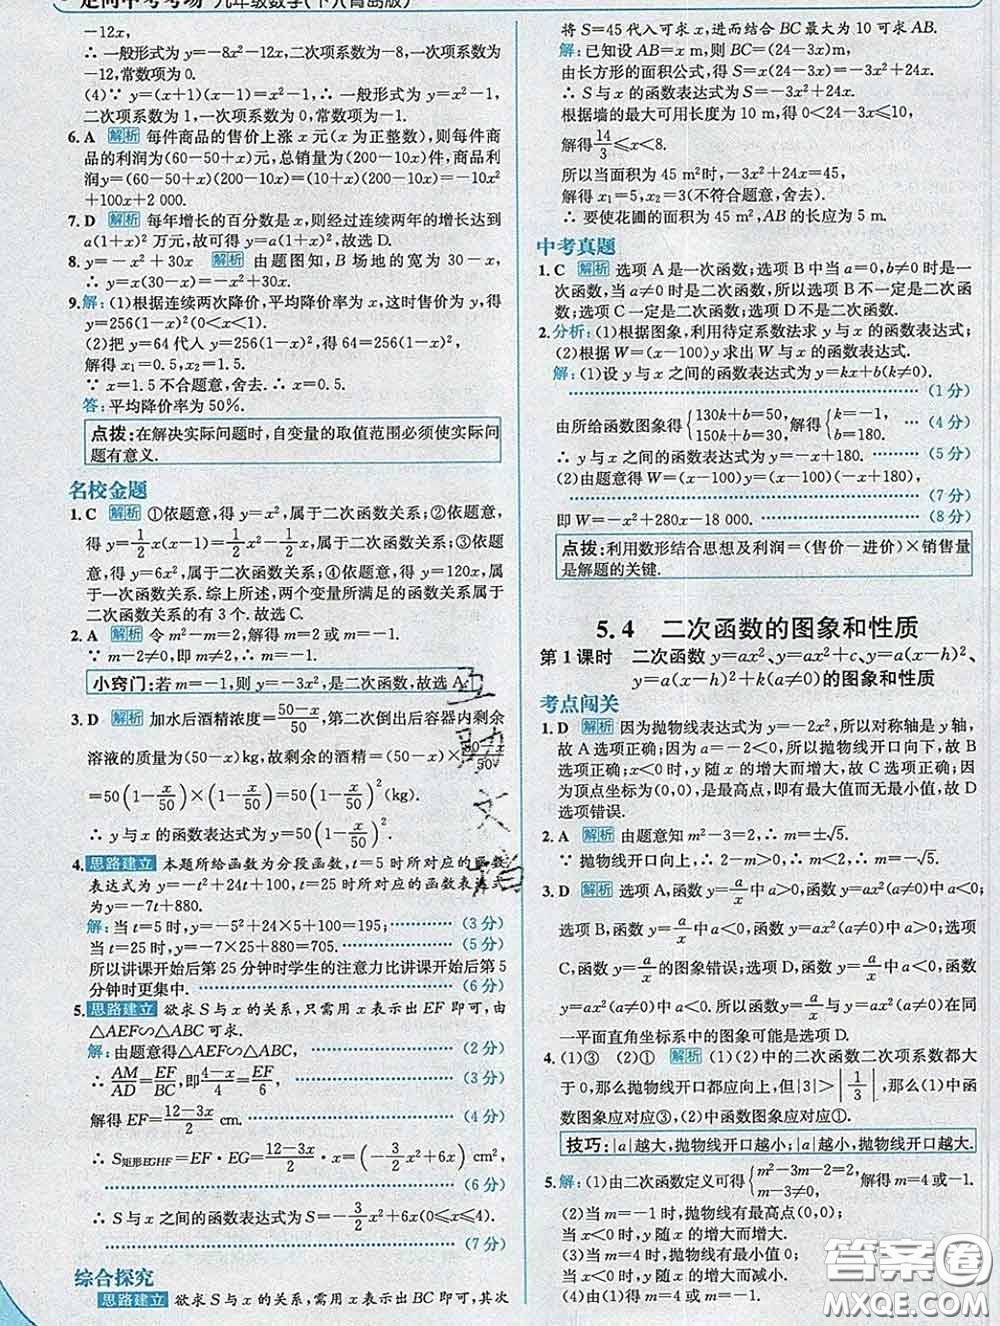 走向中考考场 九年级数学(下)(青岛版)
-12x,
∴ 一般形式为 y=-8x²-12x,二次项系数为-8,一次项系数为
-12,常数项为 0.
(4)∵ y=(x+1)(x-1)=x²-1,∴ 一般形式为 y=x²-1,
二次项系数为 1,一次项系数为 0,常数项为-1.
6. A 解析 每件商品的售价上涨 x 元(x 为正整数),则每件商
品的利润为(60-50+x)元,总销量为(200-10x)件,商品利
润y=(60-50+x)(200-10x)=(10+x)(200-10x)=-10x²
+100x+2 000.
7. D 解析 每年增长的百分数是 x,则经过连续两年的增长达到
a(1+x)² 万元,故可得 y=a(1+x)²,故选 D.
8. y=-x²+30x 解析 由题图知,B 场地的宽为 30-x,
∴ y=x(30-x)=-x²+30x.
9. 解:(1)根据连续两次降价,平均降价率为 x,这时售价为 y,得
y=256(1-x)²(0<x<1).
(2)把 y=64 代入 y=256(1-x)²,得 64=256(1-x)²,
解得 x₁=0.5,x₂=1.5.
∵ x=1.5 不合题意,舍去.∴ x=0.5.
答:平均降价率为 50%.
点拨:在解决实际问题时,自变量的取值范围必须使实际问
题有意义.
名校金题
1. C 解析 ①依题意,得 y=x²,属于二次函数关系;②依题意,
得 y=1/2 x(x-1)=1/2 x²-1/2 x,属于二次函数关系;③依题
意,得 y=6x²,属于二次函数关系;④依题意,得 y=120x,属
于一次函数关系.综上所述,两个变量所满足的函数关系属于
二次函数关系的有 3 个.故选 C.
2. A 解析 令 m²-m=2,解得 m=2 或 m=-1.
∵ m-2≠0,即 m≠2,∴ m=-1.
小窍门:若 m=-1,则 y=-3x²,是二次函数,故选 A.
3. D 解析 加水后酒精浓度=(50-x)/50,第二次倒出后容器内剩余
溶液的质量为(50-x)kg,故剩余的酒精=(50-x)×(50-x)/50
=50(1-x/50)×(1-x/50)=50(1-x/50)²(kg).
∴ y 与 x 的函数表达式为 y=50(1-x/50)².
4. 思路建立 本题所给函数为分段函数,t=5 时所对应的函数
表达式为 y=-t²+24t+100,t=25 时所对应的函数表达式
为y=-7t+880.
解:当 t=5 时,y=-5²+24×5+100=195; (3 分)
当 t=25 时,y=-7×25+880=705. (5 分)
所以讲课开始后第 25 分钟时学生的注意力比讲课开始后第 5
分钟时更集中. (6 分)
5. 思路建立 欲求 S 与 x 的关系,只需用 x 表示出 EF 即可,由
△AEF∽△ABC 可求.
解:由题意得△AEF∽△ABC, (2 分)
∴ AM/AD=EF/BC,即(4-x)/4=EF/6, (3 分)
解得 EF=(12-3x)/2 cm. (4 分)
∴ S矩形EGHF=EF·EG=(12-3x)/2·x=(-3/2 x²+6x) cm²,
(6 分)
∴ S 与 x 之间的函数表达式为 S=-3/2 x²+6x(0≤x≤4).
(7 分)
综合探究
思路建立 欲求 S 与 x 的关系,需用 x 表示出 BC 即可,其次
将 S=45 代入可求出 x,进而结合 BC 最大为 10 可求 AB.
解:已知设 AB=x m,则 BC=(24-3x)m.
由长方形的面积公式,得 S=x(24-3x)=-3x²+24x.
∴ S 与 x 的函数表达式为 S=-3x²+24x.
根据墙的最大可用长度为 10 m,得 0<24-3x≤10,
解得 14/3≤x<8.
所以当面积为 45 m²时,-3x²+24x=45,
解得 x₁=5,x₂=3(不符合题意,舍去).
∴ 要使花圃的面积为 45 m²,AB 的长应为 5 m.
中考真题
1. C 解析 选项 A 是一次函数;选项 B 中当 a=0,b≠0 时是一次
函数,当 a≠0 时是二次函数,所以选项 B 不一定是二次函
数;选项 C 一定是二次函数;选项 D 不是二次函数.
2. 分析:(1)根据图象,利用待定系数法求 y 与 x 的函数表达式;
(2)根据 W=(x-100)y 求出 W 与 x 的函数表达式.
解:(1)设 y 与 x 之间的函数表达式为 y=kx+b(k≠0).
(1 分)
由所给函数图象得{130k+b=50, 150k+b=30,解得{k=-1, b=180. (4 分)
∴ y 与 x 之间的函数表达式为 y=-x+180. (5 分)
(2)由题意得 W=(x-100)y=(x-100)(-x+180),
(7 分)
即 W=-x²+280x-18 000. (8 分)
点拨:利用数形结合思想及利润=(售价-进价)×销售量
是解题的关键.
5.4 二次函数的图象和性质
第 1 课时 二次函数 y=ax²、y=ax²+c、y=a(x-h)²、
y=a(x-h)²+k(a≠0)的图象和性质
考点闯关
1. D 解析 因为抛物线表达式为 y=-2x²,所以对称轴是 y 轴,
故 A 选项正确;因为 a=-2<0,所以抛物线开口向下,故 B
选项正确;x<0 时,y 随 x 的增大而增大,故 C 选项正确;因
为顶点坐标为(0,0),是最高点,即有最大值而无最小值,故 D
选项错误.
2. A 解析 由题意知 m²-3=2,∴ m=±√5.
∵ 抛物线开口向上,∴ 2-m>0,∴ m<2,∴ m=-√5.
3. D 解析 选项 A,函数 y=a/x 中 a>0,函数 y=ax²(a≠0)中 a<0;
选项 B,函数 y=a/x 中 a<0,函数 y=ax²(a≠0)中 a>0;选项
C,函数 y=a/x 的图象错误;选项 D,函数 y=a/x 中 a<0,函数
y=ax²(a≠0)中 a<0.所以函数 y=a/x 与 y=ax²(a≠0)在同
一平面直角坐标系中的图象可能是选项 D.
4. (1)③ (2)① 解析 (1)(2)中的二次函数二次项系数都大
于 0,那么抛物线开口都应向上,但|3|>|1/3|,那么(1)中函
数图象应对应③,(2)中函数图象对应①.
技巧:|a|越大,抛物线开口越小;|a|越小,抛物线开口越大.
5. 解:(1)由二次函数定义可得{m²-3m-2=2, m-3≠0,解得 m=4 或-1.
(2)当 m=-1 时,抛物线有最高点(0,0),
当 x<0 时,y 随 x 的增大而增大.
(3)当 m=4 时,抛物线有最低点(0,0),
当 x<0 时,y 随 x 的增大而减小.
(4)由(1)得,m=4 或 m=-1.
答案圈
MXQE.COM